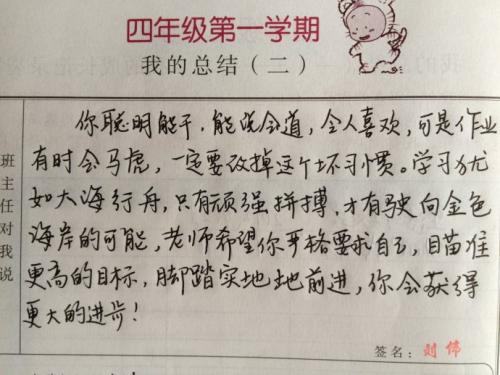 四年级第一学期
我的总结（二）
班主任对我说
你聪明能干，能说会道，令人喜欢，可是作业
有时会马虎，一定要改掉这个坏习惯。学习犹
如大海行舟，只有顽强拼搏，才有驶向金色
海岸的可能，老师希望你严格要求自己，目苗准
更高的目标，脚踏实地地前进，你会获得
更大的进步！
签名：刘伟